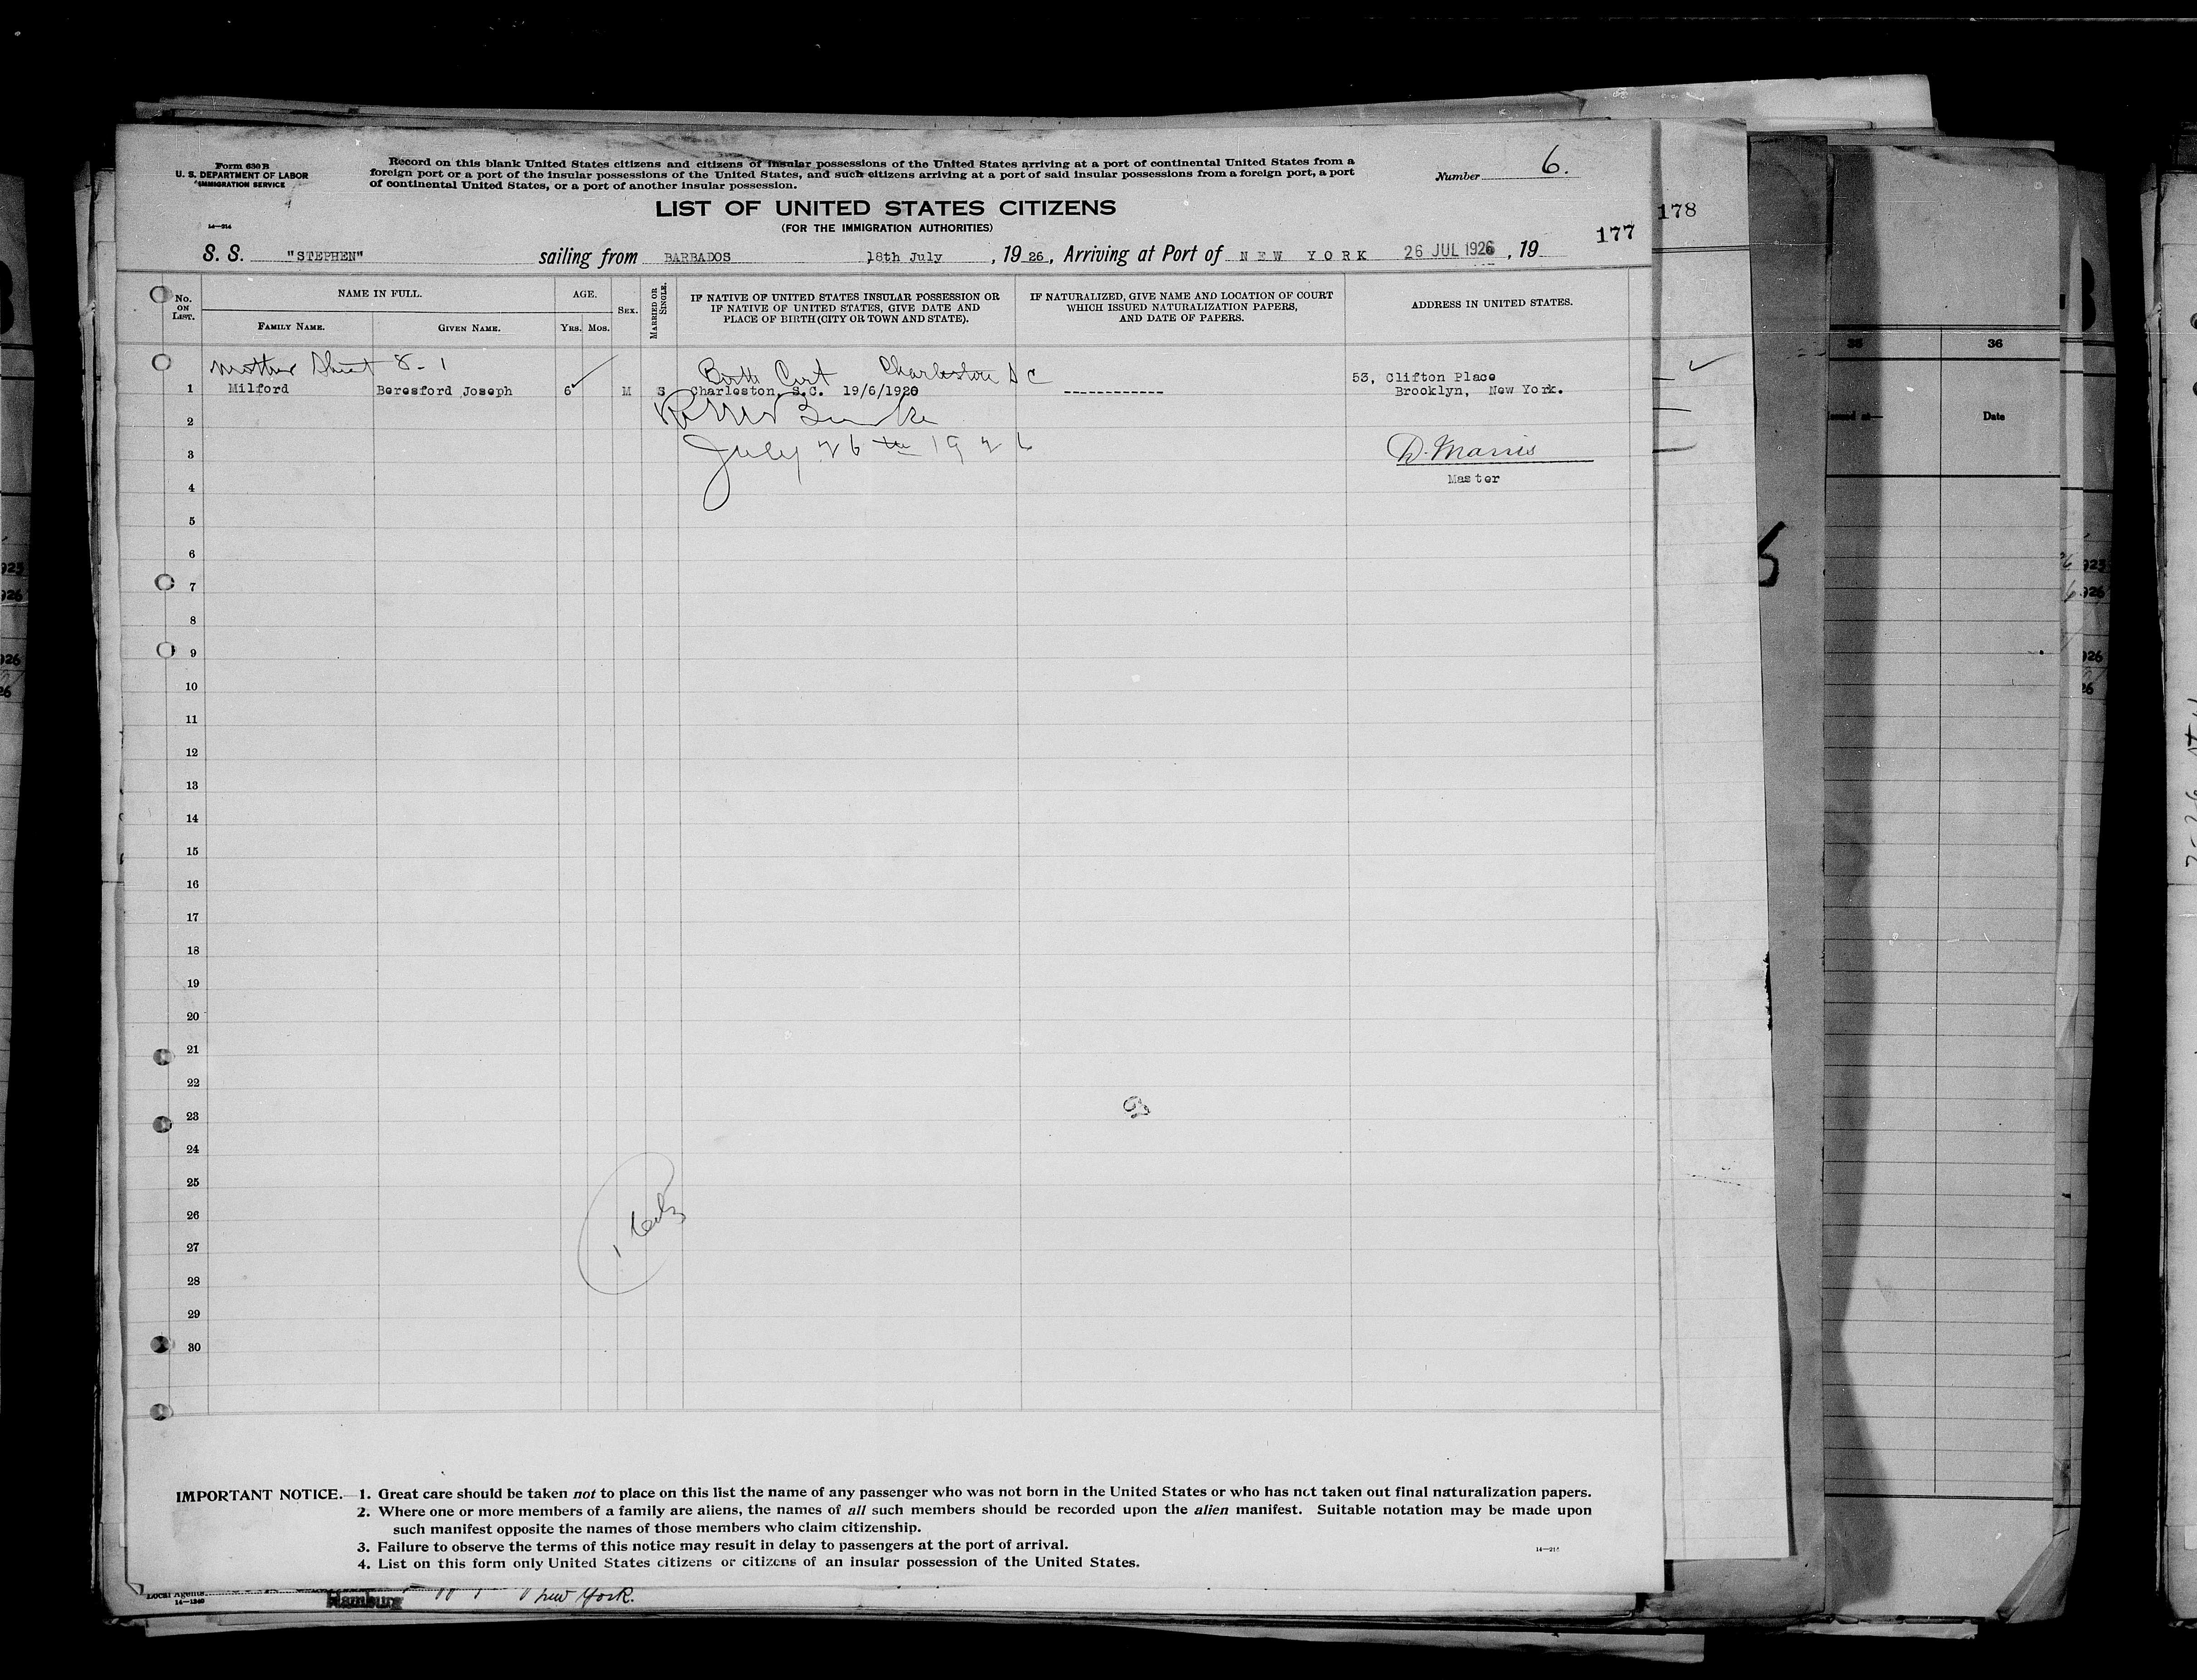 Form 630 B
U. S. DEPARTMENT OF LABOR
IMMIGRATION SERVICE
Record on this blank United States citizens and citizens of insular possessions of the United States arriving at a port of continental United States from a
foreign port or a port of the insular possessions of the United States, and such citizens arriving at a port of said insular possessions from a foreign port, a port
of continental United States, or a port of another insular possession.
Number 6.
LIST OF UNITED STATES CITIZENS
(FOR THE IMMIGRATION AUTHORITIES)
14—214
178
177
S. S. "STEPHEN" sailing from BARBADOS 18th July, 19 26, Arriving at Port of NEW YORK 26 JUL 1926, 19
No. ON LIST.
NAME IN FULL.
FAMILY NAME.
GIVEN NAME.
AGE.
YRS. MOS.
SEX.
MARRIED OR SINGLE.
IF NATIVE OF UNITED STATES INSULAR POSSESSION OR
IF NATIVE OF UNITED STATES, GIVE DATE AND
PLACE OF BIRTH (CITY OR TOWN AND STATE).
IF NATURALIZED, GIVE NAME AND LOCATION OF COURT
WHICH ISSUED NATURALIZATION PAPERS,
AND DATE OF PAPERS.
ADDRESS IN UNITED STATES.
35
36
Issued at—
Date
Mother Sheet 8-1
Birth Cert Charleston S C
1 Milford Beresford Joseph 6 M S Charleston, S.C. 19/6/1920 ------------ 53, Clifton Place
Brooklyn, New York.
2
July 26th 1926
3
D. Marris
Master
4
5
6
7
8
9
10
11
12
13
14
15
16
17
18
19
20
21
22
23
24
25
26
27
28
29
30
IMPORTANT NOTICE.—1. Great care should be taken not to place on this list the name of any passenger who was not born in the United States or who has not taken out final naturalization papers.
2. Where one or more members of a family are aliens, the names of all such members should be recorded upon the alien manifest. Suitable notation may be made upon
such manifest opposite the names of those members who claim citizenship.
3. Failure to observe the terms of this notice may result in delay to passengers at the port of arrival.
4. List on this form only United States citizens or citizens of an insular possession of the United States.
Local Agents.
14—1240
Hamburg
New York.